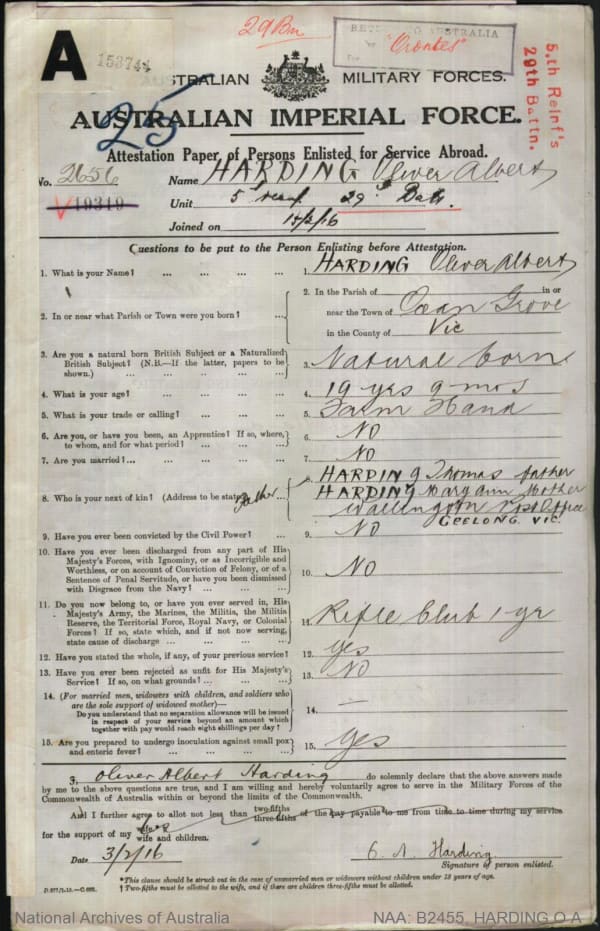 29 Bn
RETURN TO AUSTRALIA
"Orontes"
A
15374
AUSTRALIAN MILITARY FORCES.
25
5th Reinf's
29th Battn.
AUSTRALIAN IMPERIAL FORCE.
Attestation Paper of Persons Enlisted for Service Abroad.
No. 2656 Name HARDING Oliver Albert
19319
Unit 5 reinf 29th Batt.
Joined on 15/2/16
Questions to be put to the Person Enlisting before Attestation.
1. What is your Name? ... ... ... 1. HARDING Oliver Albert
2. In or near what Parish or Town were you born? ... 2. In the Parish of in or
near the Town of Ocean Grove
in the County of Vic
3. Are you a natural born British Subject or a Naturalized
British Subject? (N.B.—If the latter, papers to be
shown.) 3. Natural born
4. What is your age? 4. 19 yrs 9 mos
5. What is your trade or calling? 5. Farm Hand
6. Are you, or have you been, an Apprentice? If so, where,
to whom, and for what period? 6. NO
7. Are you married?... 7. NO
8. Who is your next of kin? (Address to be stated) Father 8. HARDING Thomas father
HARDING Mary Ann Mother
Wallington Post Office
GEELONG. VIC.
9. Have you ever been convicted by the Civil Power? 9. NO
10. Have you ever been discharged from any part of His
Majesty's Forces, with Ignominy, or as Incorrigible and
Worthless, or on account of Conviction of Felony, or of a
Sentence of Penal Servitude, or have you been dismissed
with Disgrace from the Navy? 10. NO
11. Do you now belong to, or have you ever served in, His
Majesty's Army, the Marines, the Militia, the Militia
Reserve, the Territorial Force, Royal Navy, or Colonial
Forces? If so, state which, and if not now serving,
state cause of discharge 11. Rifle Club 1 yr
12. Have you stated the whole, if any, of your previous service? 12. yes
13. Have you ever been rejected as unfit for His Majesty's
Service? If so, on what grounds? 13. NO
14. (For married men, widowers with children, and soldiers who
are the sole support of widowed mother)—
Do you understand that no separation allowance will be issued
in respect of your service beyond an amount which
together with pay would reach eight shillings per day? 14. —
15. Are you prepared to undergo inoculation against small pox
and enteric fever? 15. yes
I, Oliver Albert Harding do solemnly declare that the above answers made
by me to the above questions are true, and I am willing and hereby voluntarily agree to serve in the Military Forces of the
Commonwealth of Australia within or beyond the limits of the Commonwealth.
And I further agree to allot not less than two-fifths three-fifths of the pay payable to me from time to time during my service
for the support of my wife wife and children.
Date 3/2/16 O. A. Harding
Signature of person enlisted.
*This clause should be struck out in the case of unmarried men or widowers without children under 18 years of age.
† Two-fifths must be allotted to the wife, and if there are children three-fifths must be allotted.
National Archives of Australia NAA: B2455, HARDING O A